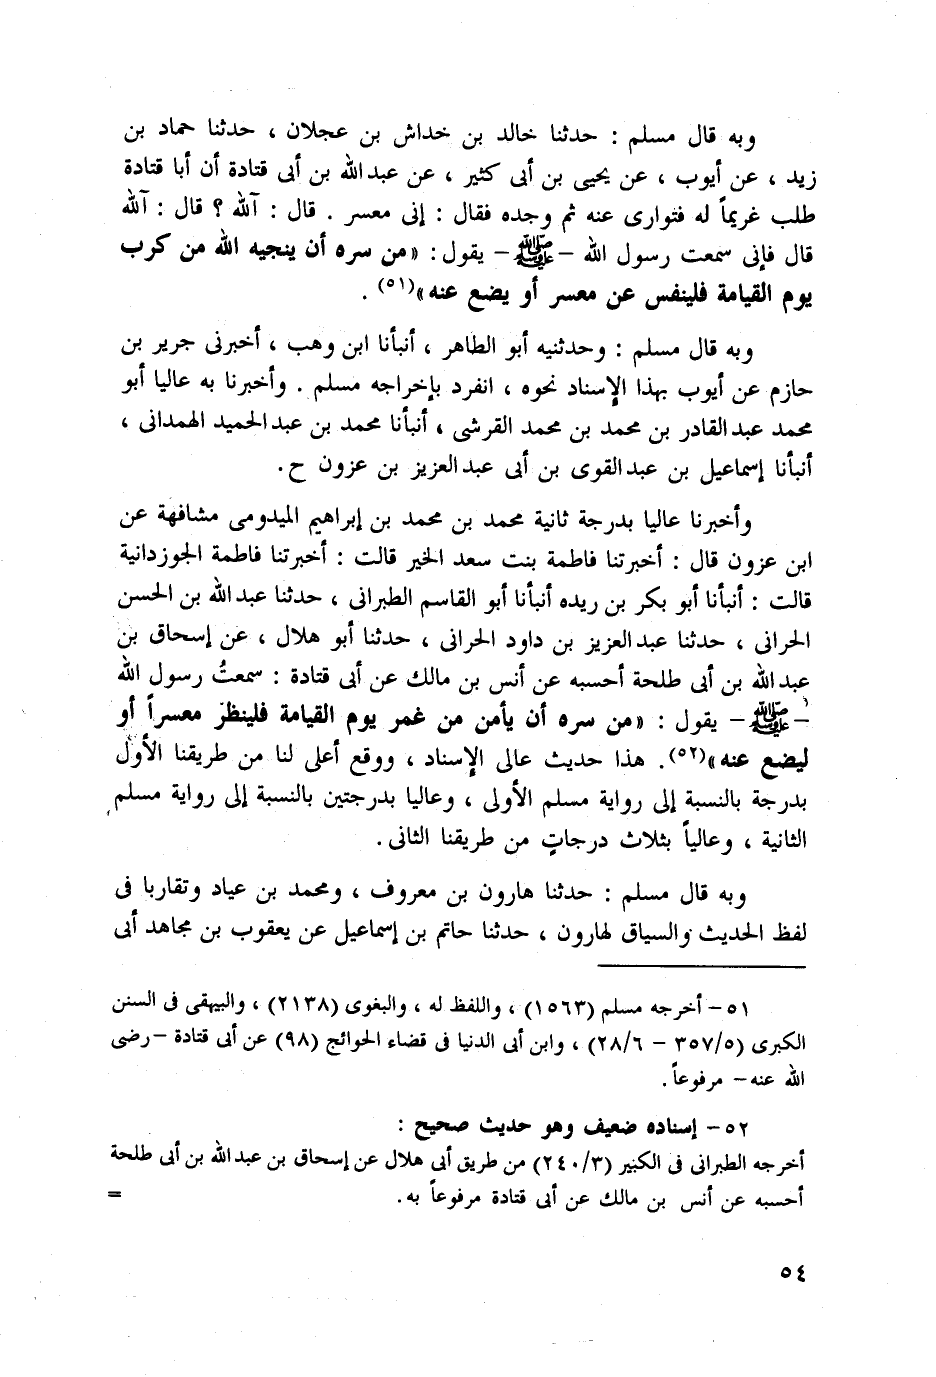 وبه قال مسلم : حدثنا خالد بن خداش بن عجلان ، حدثنا حماد بن
زيد ، عن أيوب ، عن يحيى بن أبى كثير ، عن عبد الله بن أبى قتادة أن أبا قتادة
طلب غريماً له فتوارى عنه ثم وجده فقال : إنى معسر . قال : آلله ؟ قال : آلله
قال فإنى سمعت رسول الله – ﷺ – يقول : «من سره أن ينجيه الله من كرب
يوم القيامة فلينفس عن معسر أو يضع عنه»(٥١) .
وبه قال مسلم : وحدثنيه أبو الطاهر ، أنبأنا ابن وهب ، أخبرنى جرير بن
حازم عن أيوب بهذا الإسناد نحوه ، انفرد بإخراجه مسلم . وأخبرنا به عاليا أبو
محمد عبد القادر بن محمد بن محمد القرشى ، أنبأنا محمد بن عبد الحميد الهمدانى ،
أنبأنا إسماعيل بن عبد القوى بن أبى عبد العزيز بن عزون ح .
وأخبرنا عاليا بدرجة ثانية محمد بن محمد بن إبراهيم الميدومى مشافهة عن
ابن عزون قال : أخبرتنا فاطمة بنت سعد الخير قالت : أخبرتنا فاطمة الجوزدانية
قالت : أنبأنا أبو بكر بن ريده أنبأنا أبو القاسم الطبرانى ، حدثنا عبد الله بن الحسن
الحرانى ، حدثنا عبد العزيز بن داود الحرانى ، حدثنا أبو هلال ، عن إسحاق بن
عبد الله بن أبى طلحة أحسبه عن أنس بن مالك عن أبى قتادة : سمعتُ رسول الله
– ﷺ – يقول : «من سره أن يأمن من غمر يوم القيامة فلينظر معسراً أو
ليضع عنه»(٥٢). هذا حديث عالى الإسناد ، ووقع أعلى لنا من طريقنا الأول
بدرجة بالنسبة إلى رواية مسلم الأولى ، وعاليا بدرجتين بالنسبة إلى رواية مسلم
الثانية ، وعالياً بثلاث درجاتٍ من طريقنا الثانى .
وبه قال مسلم : حدثنا هارون بن معروف ، ومحمد بن عياد وتقاربا فى
لفظ الحديث والسياق لهارون ، حدثنا حاتم بن إسماعيل عن يعقوب بن مجاهد أبى
٥١ – أخرجه مسلم (١٥٦٣) ، واللفظ له ، والبغوى (٢١٣٨) ، والبيهقى فى السنن
الكبرى (٣٥٧/٥ – ٢٨/٦) ، وابن أبى الدنيا فى قضاء الحوائج (٩٨) عن أبى قتادة – رضى
الله عنه – مرفوعاً .
٥٢ – إسناده ضعيف وهو حديث صحيح :
أخرجه الطبرانى فى الكبير (٢٤٠/٣) من طريق أبى هلال عن إسحاق بن عبد الله بن أبى طلحة
أحسبه عن أنس بن مالك عن أبى قتادة مرفوعاً به . =
٥٤